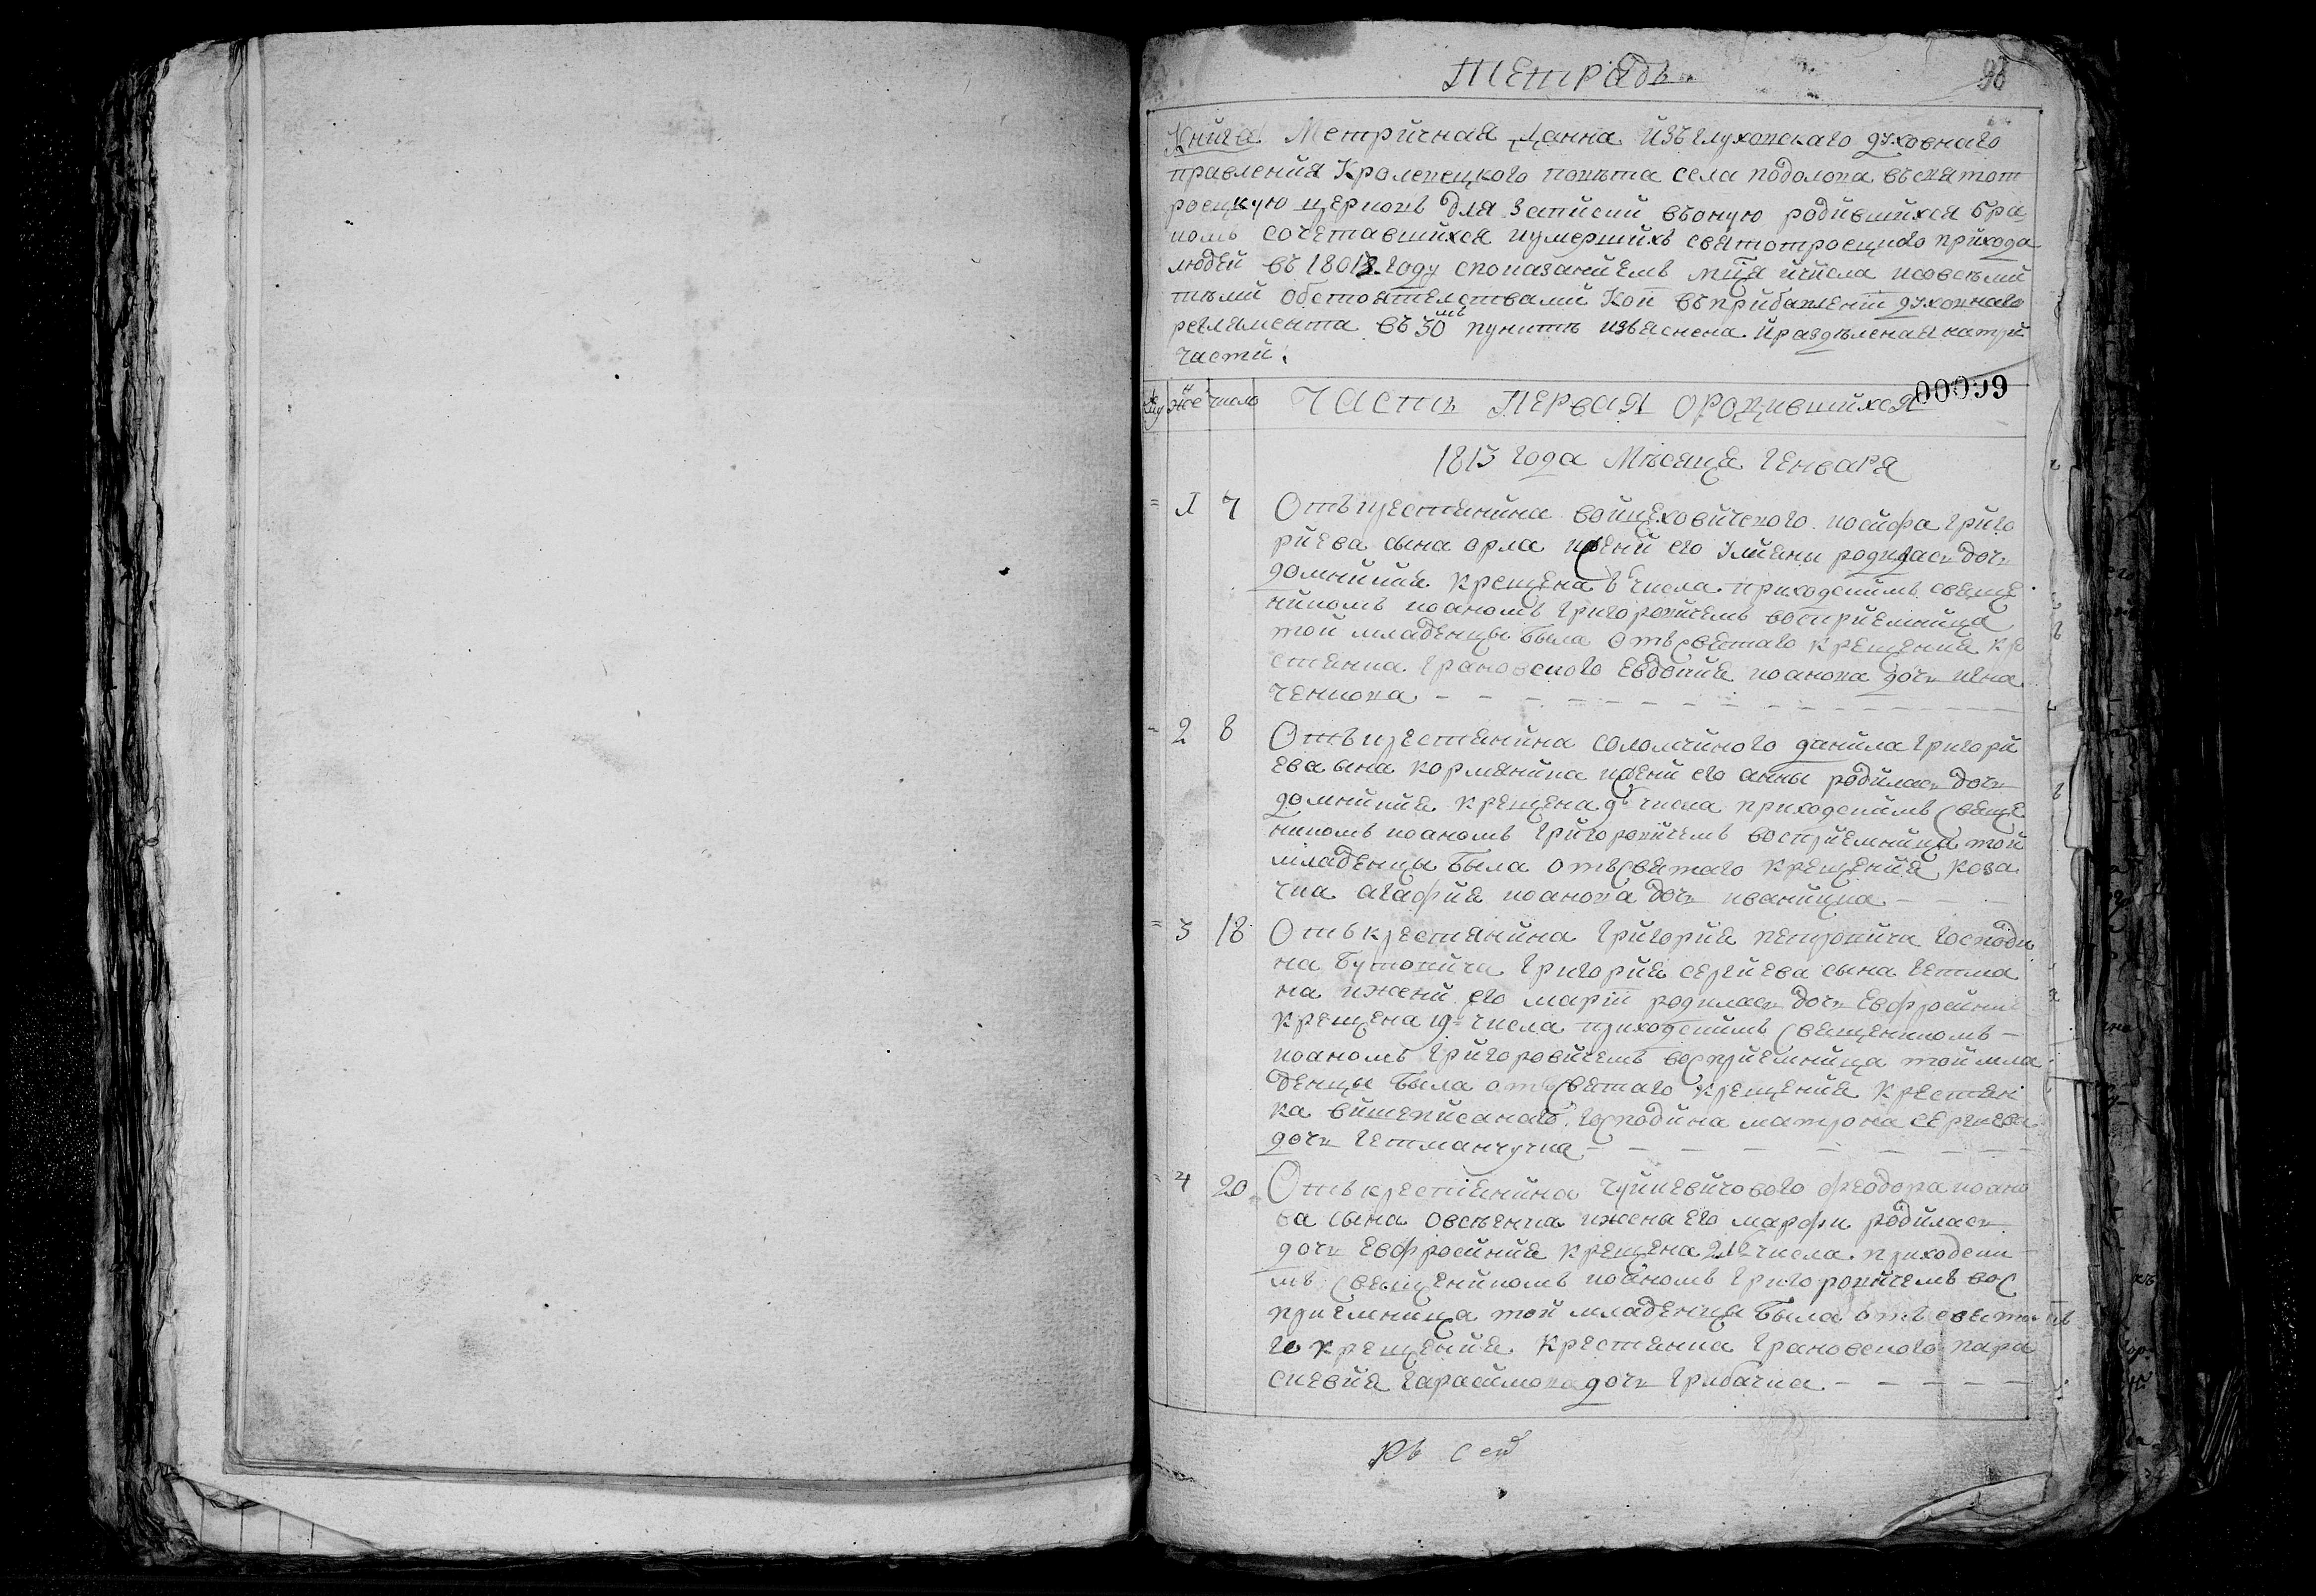 Тетрадь
98
Книга Метричная Данна изъ глуховскаго духовнаго
правления Кролевецкого повѣта села подолова въ святот
роецкую церковь для записки въ оную родившихся бра
комъ сочетавшихся и умершихъ святотроецкого прихода
людей въ 1813 году с показаниемъ мця и числа и со всѣми
тѣми обстоятелствами Кои въ прибавлении духовнаго
регламента въ 30 мъ пунктѣ изъяснена и раздѣленая на три
части.
00099
число Часть первая о родившихся
1813 года Месяця генваря
1 7 Отъ крестянина войцеховичского иосифа григо
риева сына орла и жени его улияни родилась дочь
домникия крещена 8 числа приходскимъ свяще
никомъ иоаномъ григоровичемъ восприемница
той младенцы была отъ святаго крещения кре
стянка грановского евдокия иоанова дочь
ченкова
2 8 Отъ крестянина соломчиного данила григори
ева сына кормяника и жени его анны родилась дочь
домникия крещена 9 числа приходскимъ свяще
никомъ иоаномъ григоровичемъ восприемница той
младенцы была отъ святаго крещения коза
чка агафия иоанова дочь иваницка
3 18 Отъ крестянина григория петровича господи
на бутовича григория сергиева сына гетма
на и жени его марии родилась дочь евфросиния
крещена 19 числа приходскимъ свещеникомъ
иоаномъ григоровичемъ восприемница той мла
денцы была отъ святаго крещения крестян
ка вишеписаного господина матрона сергиева
дочь гетманчучка
4 20 Отъ крестянина чуйкевичового феодора иоано
ва сына овсѣенка и жены его марфи родилась
дочь евфросиния крещена 21 числа приходски
мъ свещеникомъ иоаномъ григоровичемъ вос
приемница той младенцы была отъ свято
го крещения крестянка грановского пара
скевия гарасимова дочь грибачка